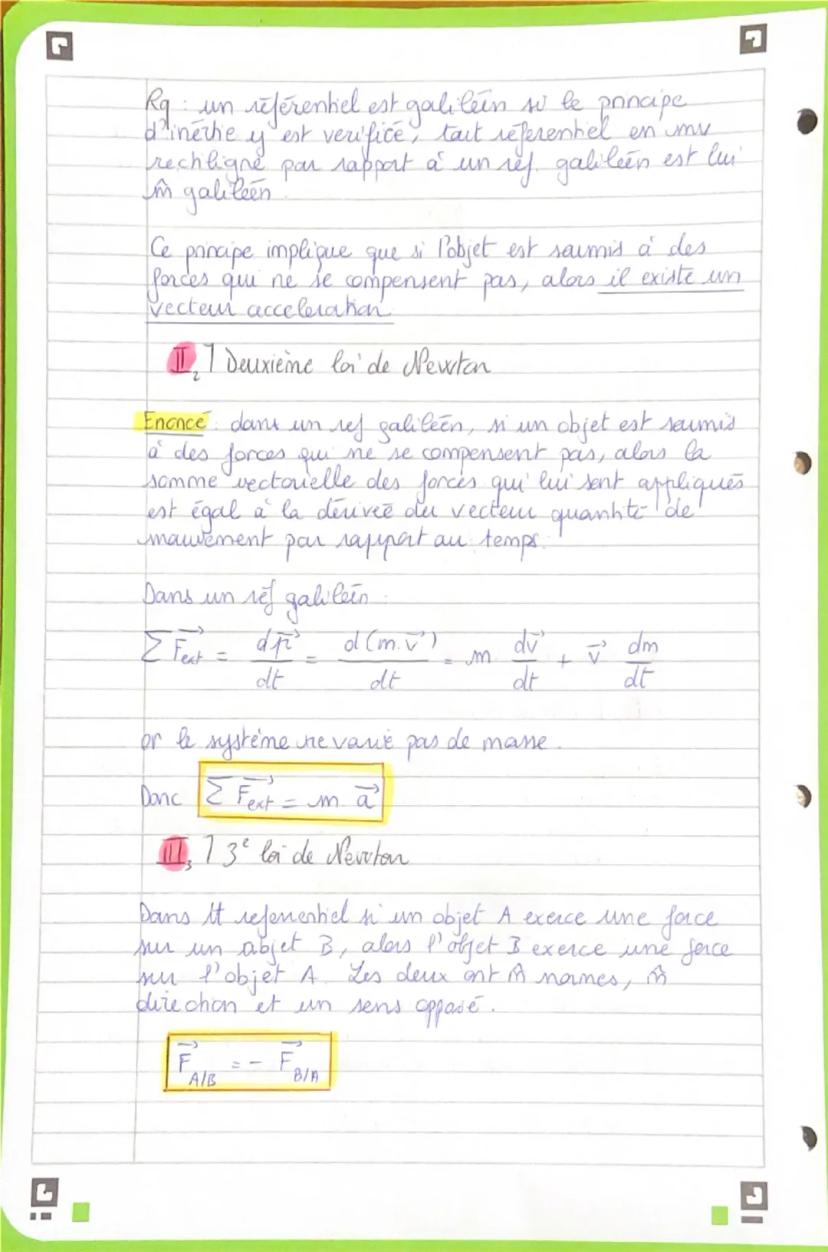 Rq : un référentiel est galiléen si le principe
d'inértie y est verifiée, tout réferentiel en mv
rectiligne par rapport à un réf. galiléen est lui
m̂ galiléen
Ce principe implique que si l'objet est soumis à des
forces qui ne se compensent pas, alors il existe un
vecteur acceleration.
II2 / Deuxième loi de Newton
Enoncé : dans un ref galiléen, si un objet est soumis
à des forces qui ne se compensent pas, alors la
somme vectorielle des forces qui lui sont appliqués
est égal à la dérivée du vecteur quantité de
mouvement par rapport au temps.
Dans un réf galiléen :
Σ F⃗ext = dp⃗/dt = d(m.v⃗)/dt = m dv⃗/dt + v⃗ dm/dt
or le système ne varie pas de masse.
Donc Σ F⃗ext = m a⃗
III3 / 3e loi de Newton
Dans tt referentiel si un objet A exerce une force
sur un objet B, alors l'objet B exerce une force
sur l'objet A. Les deux ont m̂ normes, m̂
direction et un sens opposé.
F⃗A/B = - F⃗B/A